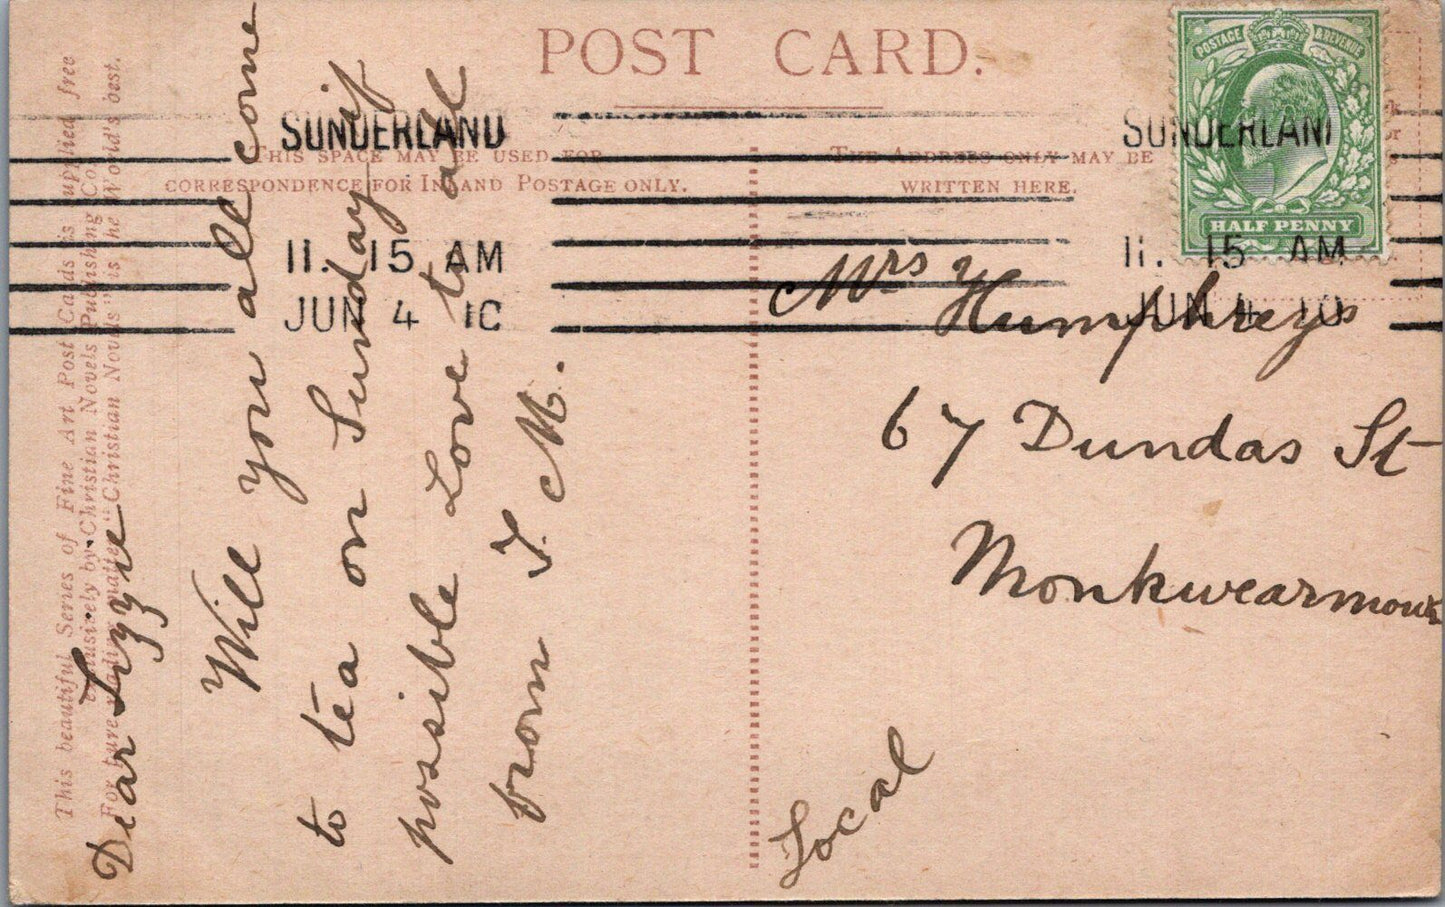 POST CARD.
THIS SPACE MAY BE USED FOR
CORRESPONDENCE FOR INLAND POSTAGE ONLY.
THE ADDRESS ONLY MAY BE
WRITTEN HERE.
POSTAGE & REVENUE
HALF PENNY
SUNDERLAND
11. 15 AM
JUN 4 10
SUNDERLAN
11. 15 AM
JUN 4 10
This beautiful Series of Fine Art Post Cards is supplied free
exclusively by Christian Novels Publishing Co.,
For pure reading matter "Christian Novels" is the World's best.
Dear Lizzie
Will you all come
to tea on Sunday if
possible Love to all
from J. M.
Mrs Humphreys
67 Dundas St
Monkwearmouth
Local